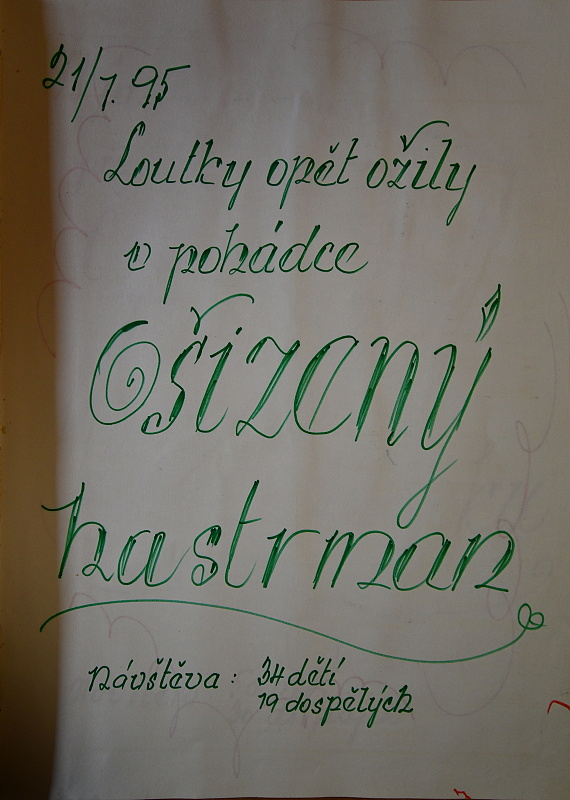 21/1. 95
Loutky opět ožily
v pohádce
Ošizený
hastrman
Návštěva : 34 dětí
19 dospělých